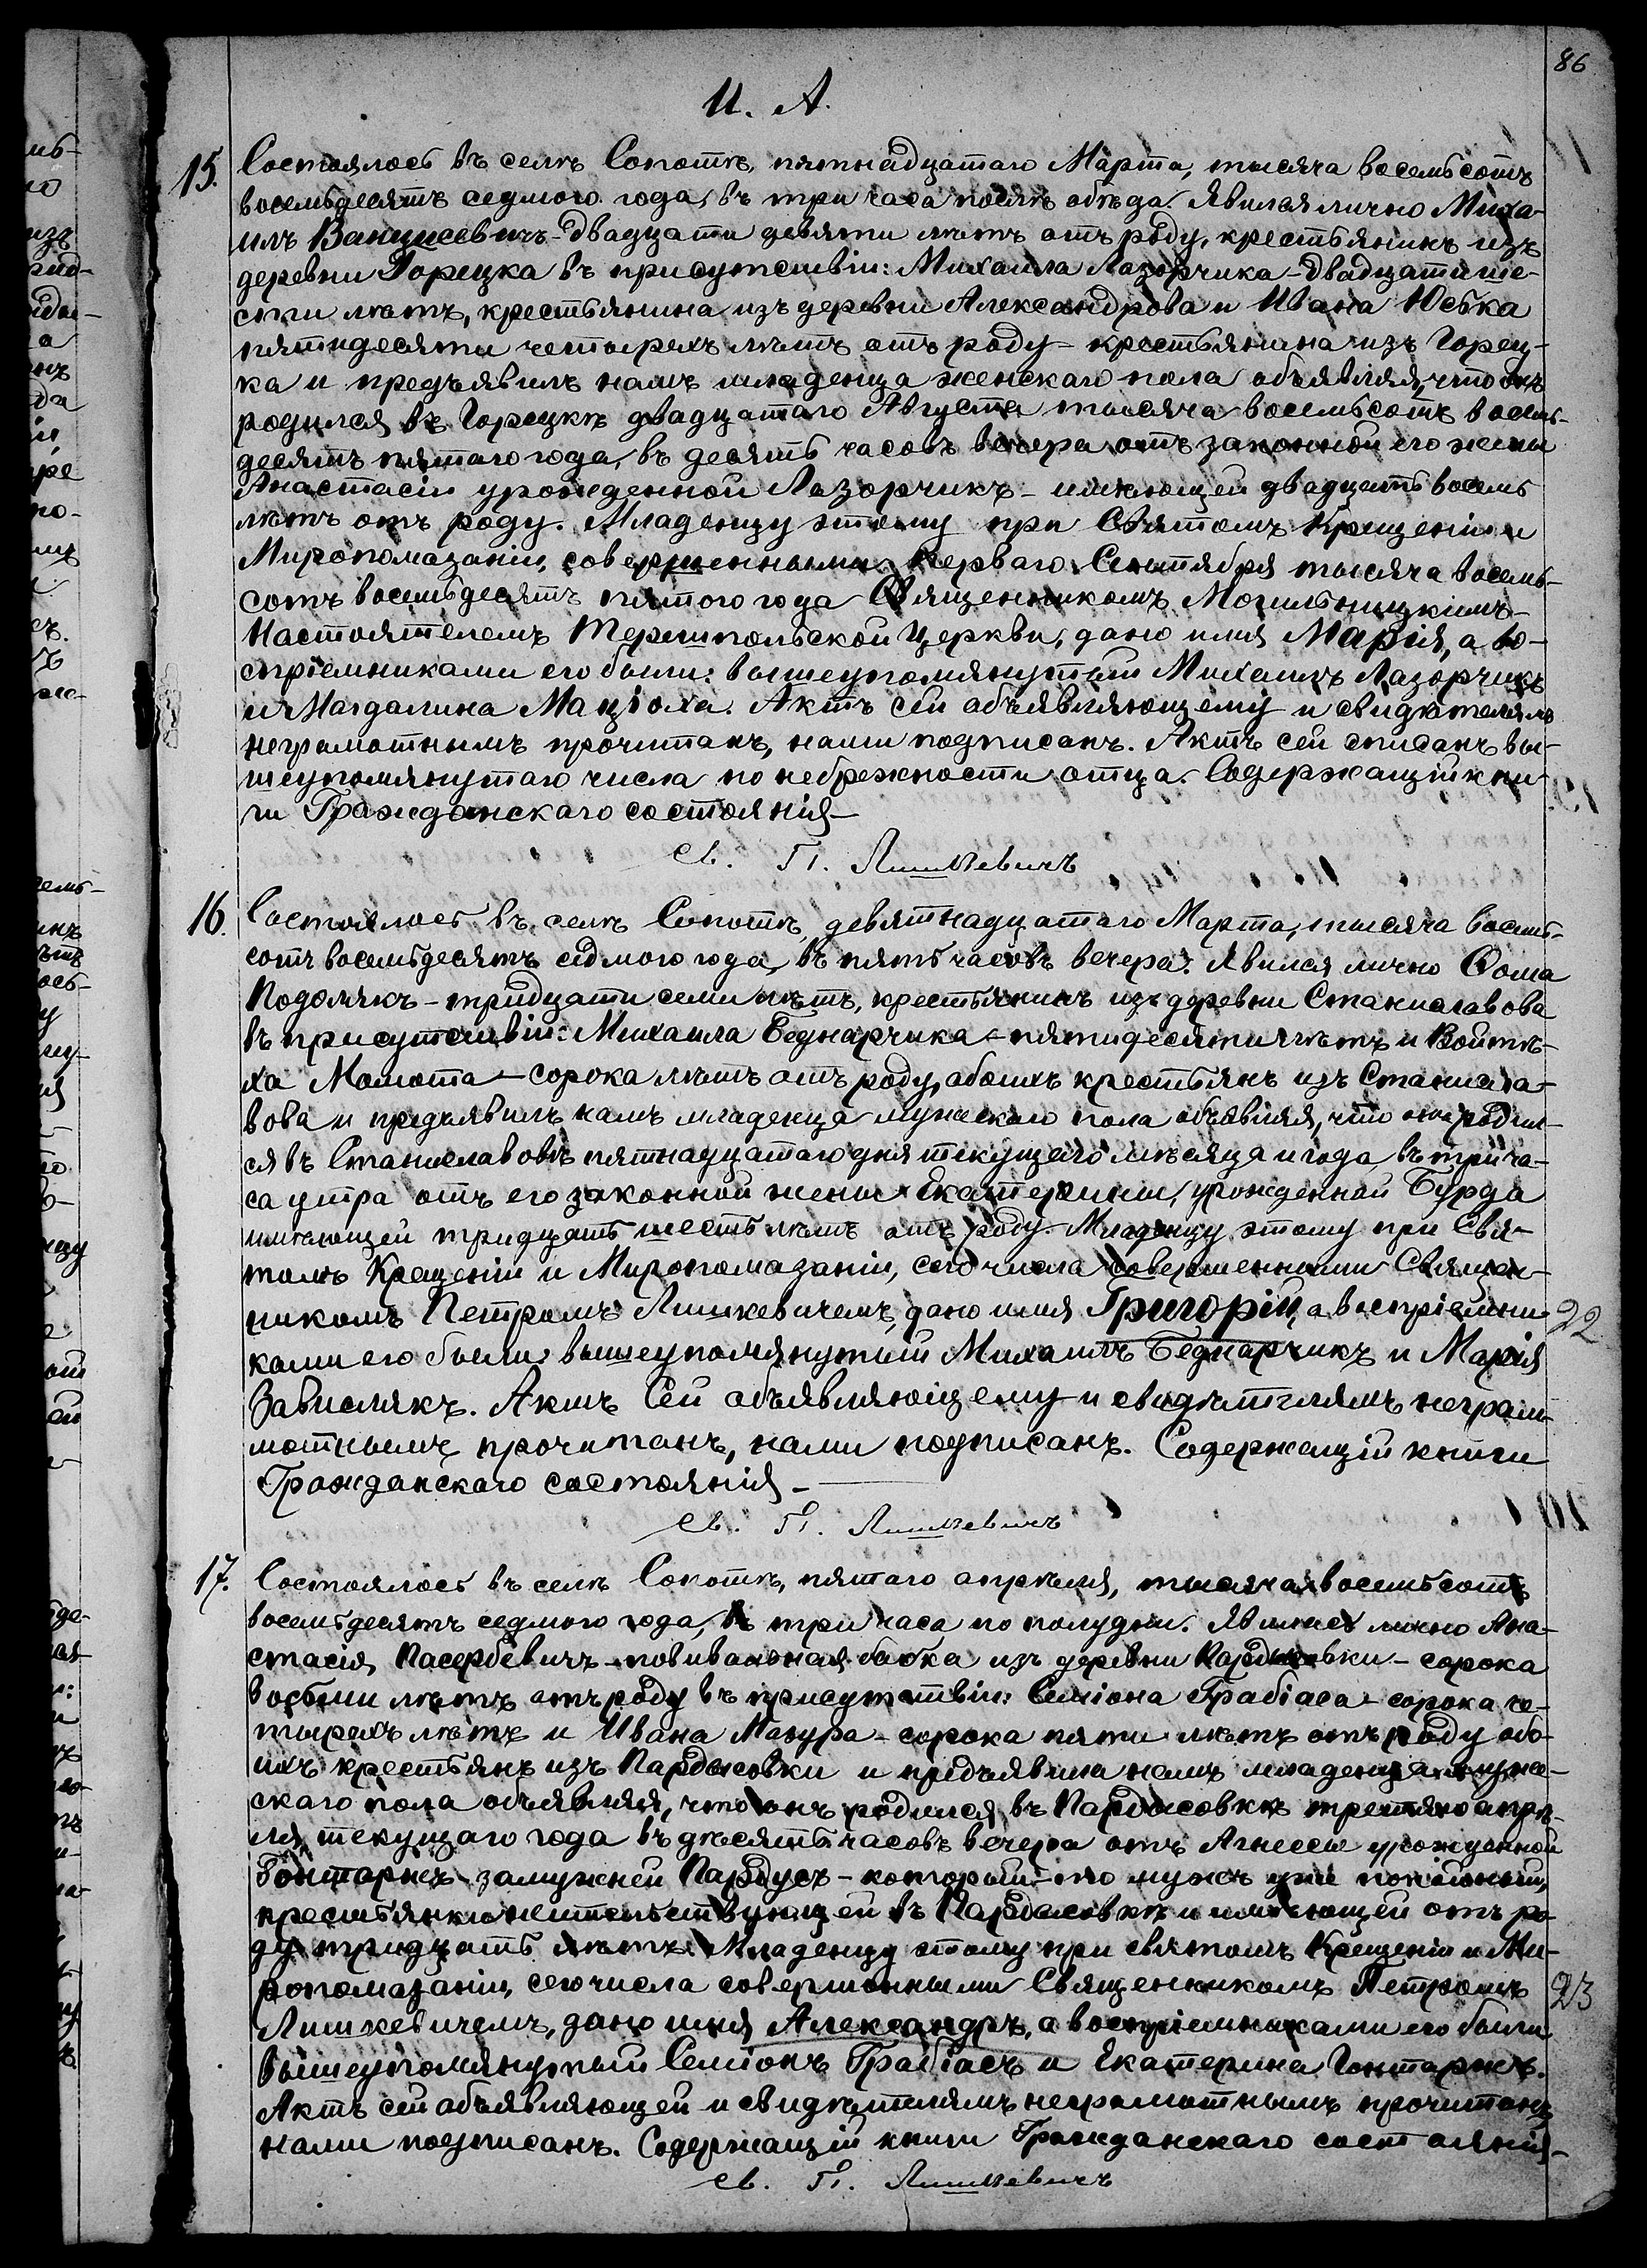 86
И. А.
15. Состоялось въ селѣ Сопотѣ, пятнадцатаго Марта, тысяча восемьсотъ
восемьдесятъ седмого года, въ три часа послѣ обѣда. Явился лично Миха-
илъ Ванцисевичъ - двадцати девяти лѣтъ отъ роду, крестьянинъ изъ
деревни Горецка въ присутствіи: Михаила Лазорчика - двадцати ше-
сти лѣтъ, крестьянина изъ деревни Александрова и Ивана Юська
пятидесяти четырехъ лѣтъ отъ роду - крестьянина изъ Горец-
ка и предъявилъ намъ младенца женскаго пола объявляя, что онъ
родился въ Горецкѣ двадцатаго Августа тысяча восемьсотъ восемь-
десятъ пятаго года, въ десять часовъ вечера отъ законной его жены
Анастасіи урожденной Лазорчикъ - имѣющей двадцать восемь
лѣтъ отъ роду. Младенцу этому при Святомъ Крещеніи и
Миропомазаніи, совершенными перваго Сентября тысяча восемь-
сотъ восемьдесятъ пятого года Священникомъ Могильницкимъ -
Настоятелемъ Терешпольской Церкви, дано имя Марія, а во-
спріемниками его были: вышеупомянутый Михаилъ Лазорчикъ
и Магдалина Маціоха. Актъ сей объявляющему и свидѣтелямъ
неграмотнымъ прочитанъ, нами подписанъ. Актъ сей списанъ вы-
шеупомянутаго числа по небрежности отца. Содержащій кни-
ги Гражданскаго состоянія -
Св. П. Лишкевичъ
16. Состоялось въ селѣ Сопотѣ, девятнадцатаго Марта, тысяча восемь-
сотъ восемьдесятъ седмого года, въ пять часовъ вечера. Явился лично Ѳома
Подолякъ - тридцати семи лѣтъ, крестьянинъ изъ деревни Станиславова
въ присутствіи: Михаила Беднарчика - пятидесяти лѣтъ и Войтѣ-
ха Момота - сорока лѣтъ отъ роду, обоихъ крестьянъ изъ Станисла-
вова и предъявилъ намъ младенца мужескаго пола объявляя, что онъ родил-
ся въ Станиславовѣ пятнадцатаго дня текущего мѣсяца и года, въ три ча-
са утра отъ его законной жены Екатерины, урожденной Бурда
имѣющей тридцать шесть лѣтъ отъ роду. Младенцу этому при Свя-
томъ Крещеніи и Миропомазаніи, сего числа совершенными Священ-
никомъ Петромъ Лишкевичемъ, дано имя Григорій, а воспріемни- 22
ками его были: вышеупомянутый Михаилъ Беднарчикъ и Марія
Завислякъ. Актъ Сей объявляющему и свидѣтелямъ негра-
мотнымъ прочитанъ, нами подписанъ. Содержащій книги
Гражданскаго состоянія -
Св. П. Лишкевичъ
17. Состоялось въ селѣ Сопотѣ, пятаго апрѣля, тысяча восемьсотъ
восемьдесятъ седмого года, въ три часа по полудни. Явилась лично Ана-
стасія Пасербевичъ - повивальная бабка изъ деревни Пардысовки - сорока
восьми лѣтъ отъ роду въ присутствіи: Семіона Грабіаса - сорока че-
тырехъ лѣтъ и Ивана Мазура - сорока пяти лѣтъ отъ роду обо-
ихъ крестьянъ изъ Пардысовки и предъявила намъ младенца муже-
скаго пола объявляя, что онъ родился въ Пардысовкѣ третяго апрѣ-
ля текущаго года въ десять часовъ вечера отъ Агнессы урожденной
Гонтаржъ замужней Пардусъ - который-то мужъ уже покойный,
крестьянки жительствующей въ Пардысовкѣ и имѣющей отъ ро-
ду тридцать лѣтъ. Младенцу этому при святомъ Крещеніи и Ми-
ропомазаніи, сего числа совершонными Священникомъ Петромъ 23
Лишкевичемъ, дано имя Александръ, а воспріемниками его были
вышеупомянутый Семіонъ Грабіасъ и Екатерина Гонтаржъ.
Актъ сей объявляющей и свидѣтелямъ неграмотнымъ прочитанъ
нами подписанъ. Содержащій книги Гражданскаго состоянія -
Св. П. Лишкевичъ